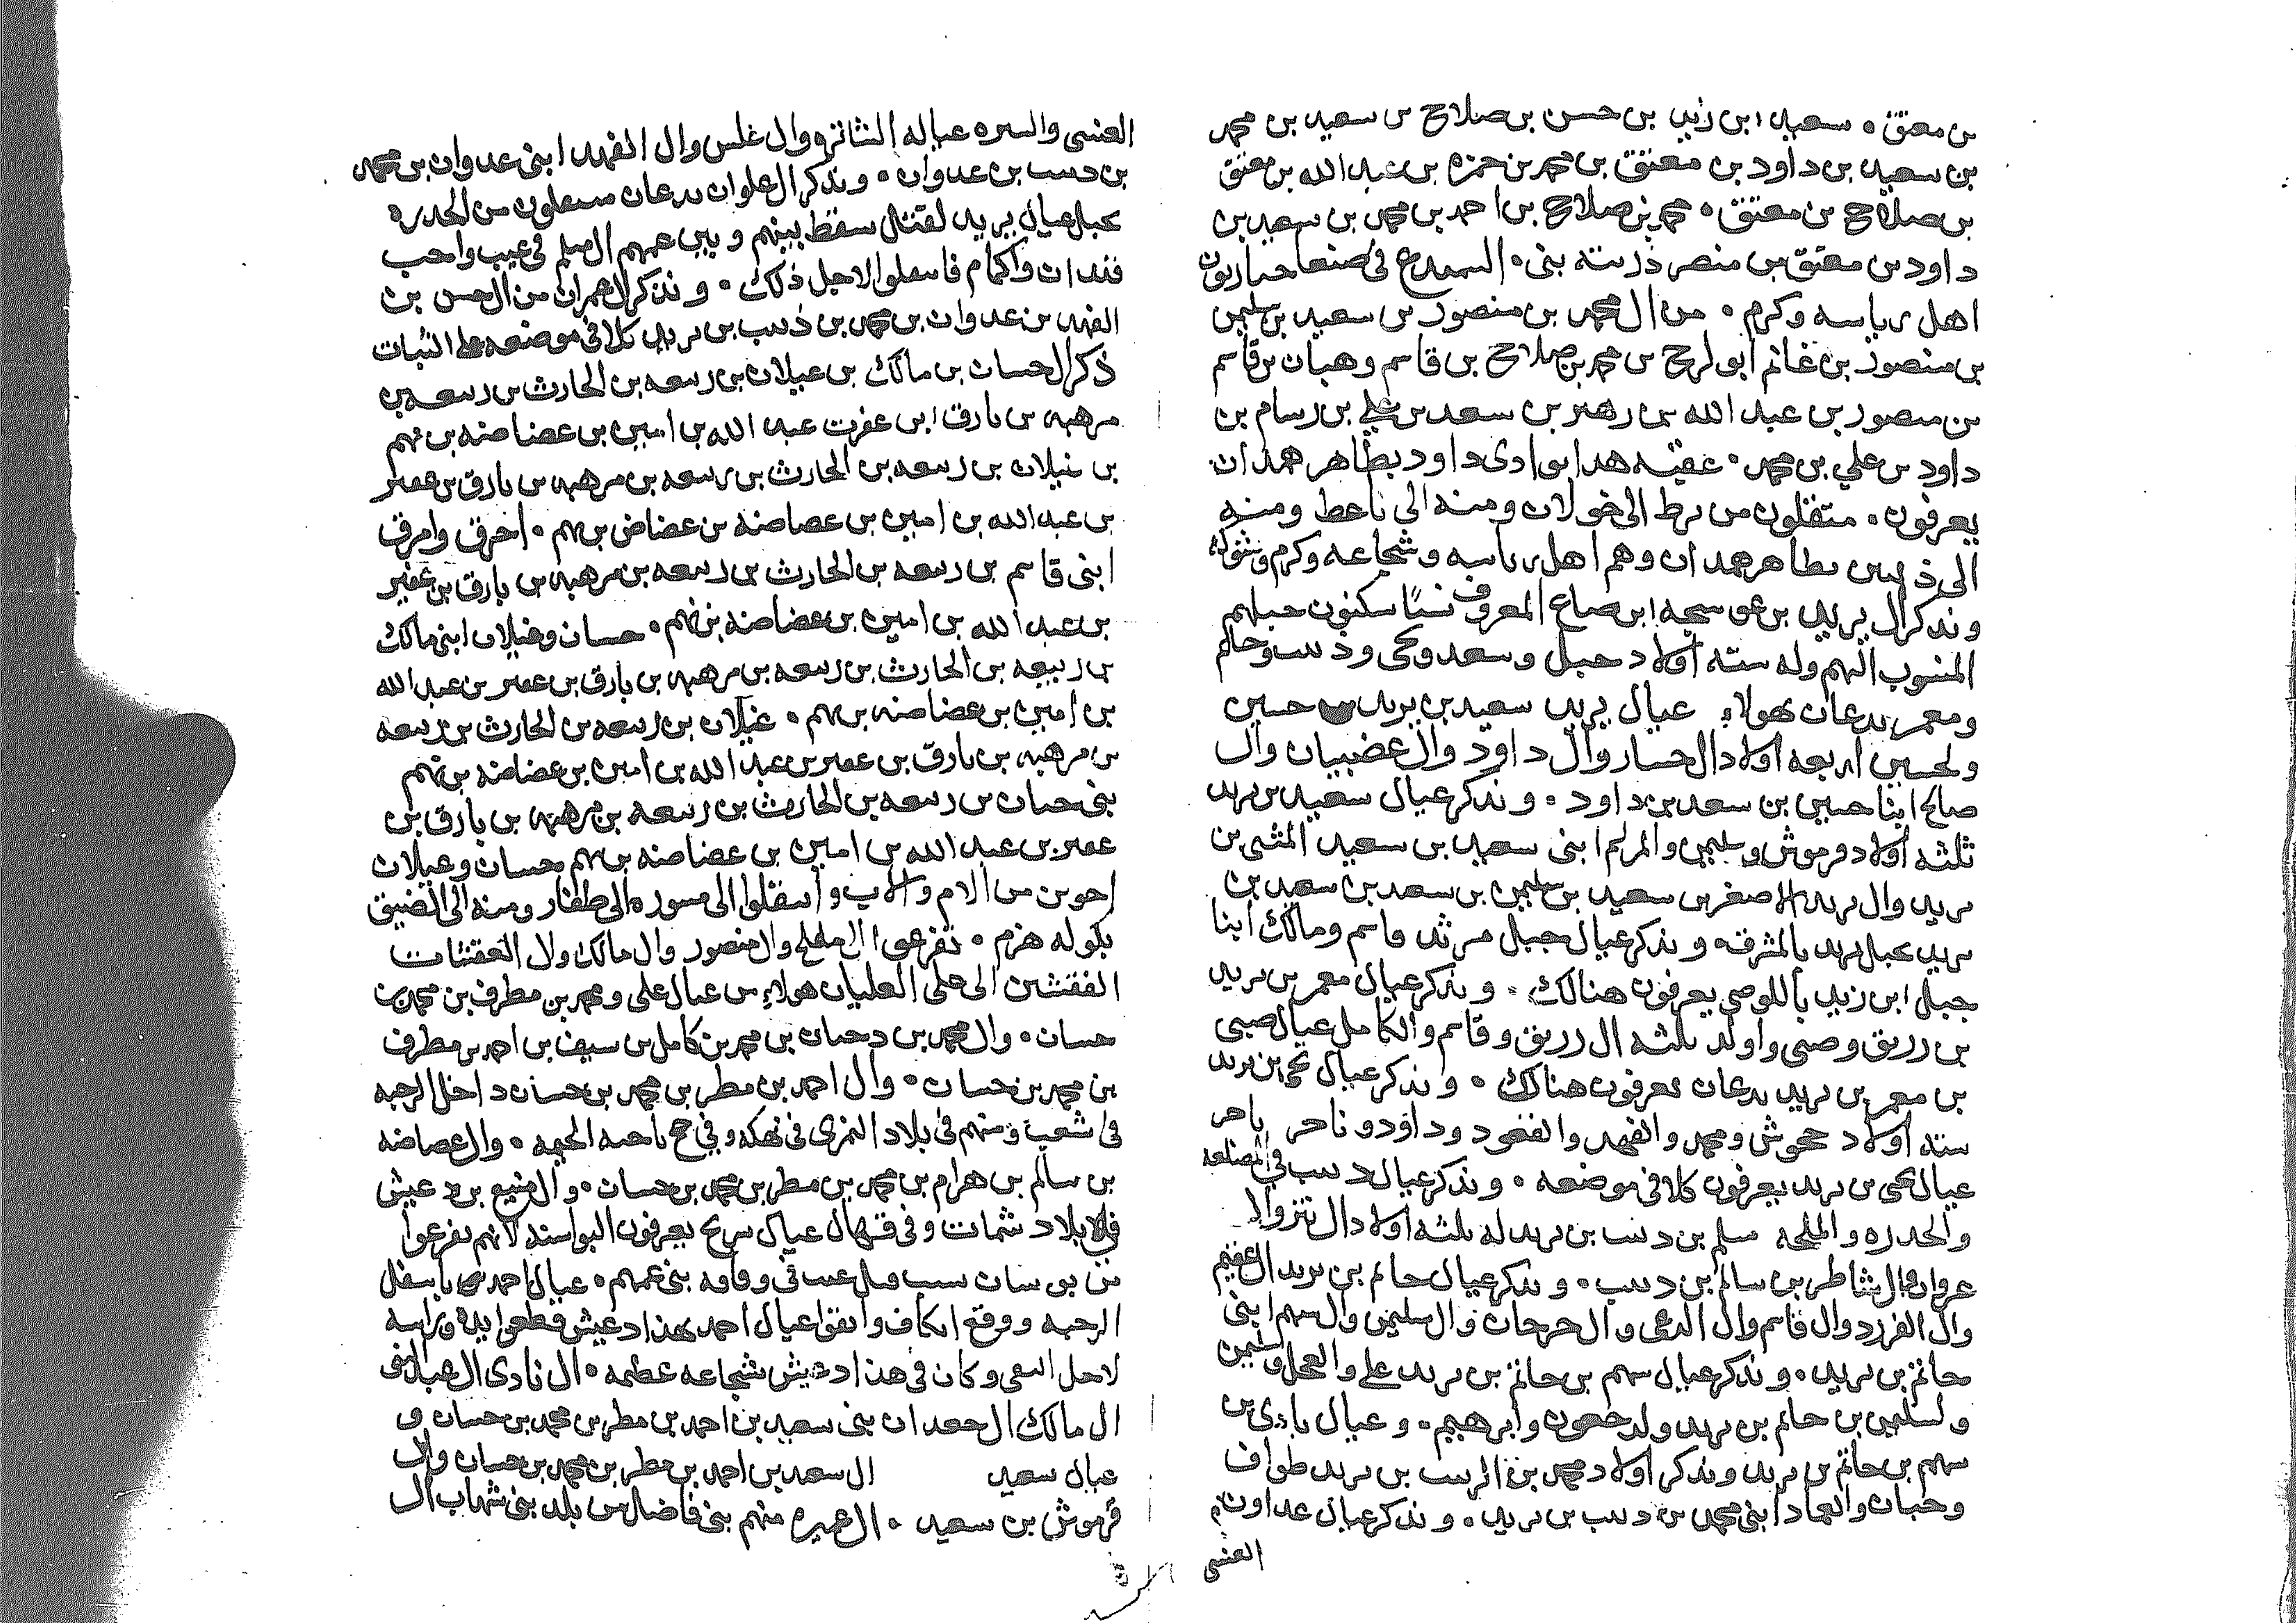 بن معتق . سعيد ابن زيد بن حسن بن صلاح بن سعيد بن محمد
بن سعيد بن داود بن معتق بن محمد بن حمزه بن عبد الله بن معتق
بن صلاح بن معتق . محمد بن صلاح بن احمد بن محمد بن سعيد بن
داود بن معتق بن منصر ذريته بنى . السميدع فى صنعا
اهل رياسه وكرم . من ال محمد بن منصور بن سعيد بن سليمن
بن منصور بن غانم ابو لرح بن محمد بن صلاح بن قاسم وهبان بن قاسم
بن منصور بن عبد الله بن زهير بن سعد بن علي بن رسام بن
داود بن علي بن محمد . عقبه هدا بوادى داود بظاهر همدان
يعرفون . متفلون من برط الى خولان ومنه الى ناعط ومنه
الى ذيبين بظاهر همدان وهم اهل رياسه وشجاعه وكرم وشوكه
ونذكر ال يزيد بن عوسجه ابن صاع المعروف نسبًا سكنون جبلهم
المنسوب اليهم وله سته اولاد جبل وسعد ويحى وذيب وحاتم
ومعمر يدعان بهولاء عيال يزيد سعيد بن يزيد بن حسين
ولحسين اربعه اولاد ال حسار وال داود وال عضبيان وال
صالح ابنا حسين بن سعد بن داود . ونذكر عيال سعيد بن يزيد
ثلثه اولاد فرموش وسليمن والمريم ابنى سعيد بن سعيد المثنى بن
يزيد وال يزيد الاصغر بن سعيد بن سليمن بن سعد بن سعيد بن
يزيد بجبل يزيد بالمشرق . ونذكر عيال جبل مرثد قاسم ومالك ابنا
جبل ابن زيد باللوصى يعرفون هنالك . ونذكر عيال معمر بن يزيد
بن رزيق وصبى واولد ثلثه ال رزيق وقاسم والكامل عيال صبى
بن معمر بن يزيد يدعان يعرفون هنالك . ونذكر عيال يحى بن يزيد
سته اولاد حموش ومحمد والفهد والقعود وداود وناجر
عيال يحى بن يزيد يعرفون كلا فى موضعه . ونذكر عيال ذيب فى المصلعه
والحدره والملحه مسلم بن ذيب بن يزيد له ثلثه اولاد ال
عروان وال شاطر بن سالم بن ذيب . ونذكر عيال حاتم بن يزيد ال
وال الفرد وال قاسم وال الدعى وال حرجان وال سليمن وال سهم ابنى
حاتم بن يزيد . ونذكر عيال سهم بن حاتم بن يزيد على والعجل وسليمن
ولسليمن بن حاتم بن يزيد ولد جعون وابرهيم . وعيال بادى بن
سهم بن حاتم بن يزيد ونذكر اولاد محمد بن الذيب بن يزيد طواف
وحبان والعماد ابنى محمد بن ذيب بن يزيد . ونذكر عيال عداون
العنسى
العنسى والسره عياله النشانزه وال غلس وال الفهد ابنى عدوان بن محمد
بن ذيب بن عدوان . ونذكر ال علوان يدعان مسعلون من الحدره
بجبل عيال يزيد لقتال سقط بينهم وبين عمهم ال مسلم فى عيب واحب
فعدان واكمام فاسعلوا لاجل ذلك . ونذكر ال عمران من ال حسن بن
الفهد بن عدوان بن محمد بن ذيب بن يزيد كلا فى موضعه على الثبات
ذكر ال حسان بن مالك بن عيلان بن ربيعه بن الحارث بن ربيعه بن
مرهبه بن بارق ابن عفرت عبد الله بن امين بن عضاضه بن نهم
بن غيلان بن ربيعه بن الحارث بن ربيعه بن مرهبه بن بارق بن عمير
بن عبد الله بن امين بن عصاصه بن عضاض بن نهم . اخرق وامرق
ابنى قاسم بن ربيعه بن الحارث بن ربيعه بن مرهبه بن بارق بن عفير
بن عبد الله بن امين بن عضاضه بن نهم . حسان وغيلان ابنى مالك
بن ربيعه بن الحارث بن ربيعه بن مرهبه بن بارق بن عمير بن عبد الله
بن امين بن عضاضه بن نهم . غيلان بن ربيعه بن الحارث بن ربيعه
بن مرهبه بن بارق بن عمير بن عبد الله بن امين بن عضاضه بن نهم
بنى حسان بن ربيعه بن الحارث بن ربيعه بن مرهبه بن بارق بن
عمير بن عبد الله بن امين بن عضاضه بن نهم حسان وعيلان
اخوين من الام والاب واسفلوا الى مسوره الى ظفار ومنه الى المضيق
بكوله هزم . تفرعوا ال مفلح وال منصور وال مالك وال العقتنات
الفقتشن الى على العليان هولاء من عيال على ومحمد بن مطرف بن محمد بن
حسان . وال محمد بن دحمان بن محمد بن كامل بن سيف بن احمد بن مطرف
بن محمد بن حسان . وال احمد بن مطر بن محمد بن حسان داخل الرحبه
فى شعب ومنهم فى بلاد النمرى فى نهكه وفى حج ناحيه الحيمه . وال عصاصه
بن سالم بن هرام بن محمد بن مطر بن محمد بن حسان . وال منيع بن دعيش
بلاد شمات وفى قهال عيال سريح يعرفون البواسند لانهم تفرعوا
من بوسان سبب قبل عيب فى وقافه بنى عمهم . عيال احمد بن باسفل
الرحبه ووقع اىكاف واتفق اعيال احمد بهذا دعيش فطعوا يده وراسه
لاجل البغى وكان فى هذا دعيش شجاعه عظيمه . ال نادى ال هبال بنى
ال مالك ال جعدان بنى سعيد بن احمد بن مطر بن محمد بن حسان و
عيال سعيد ال سعد بن احمد بن مطر بن محمد بن حسان وال
فرموش بن سعيد . ال عميره منهم بنى فاضل من بلد بنى شهاب ال